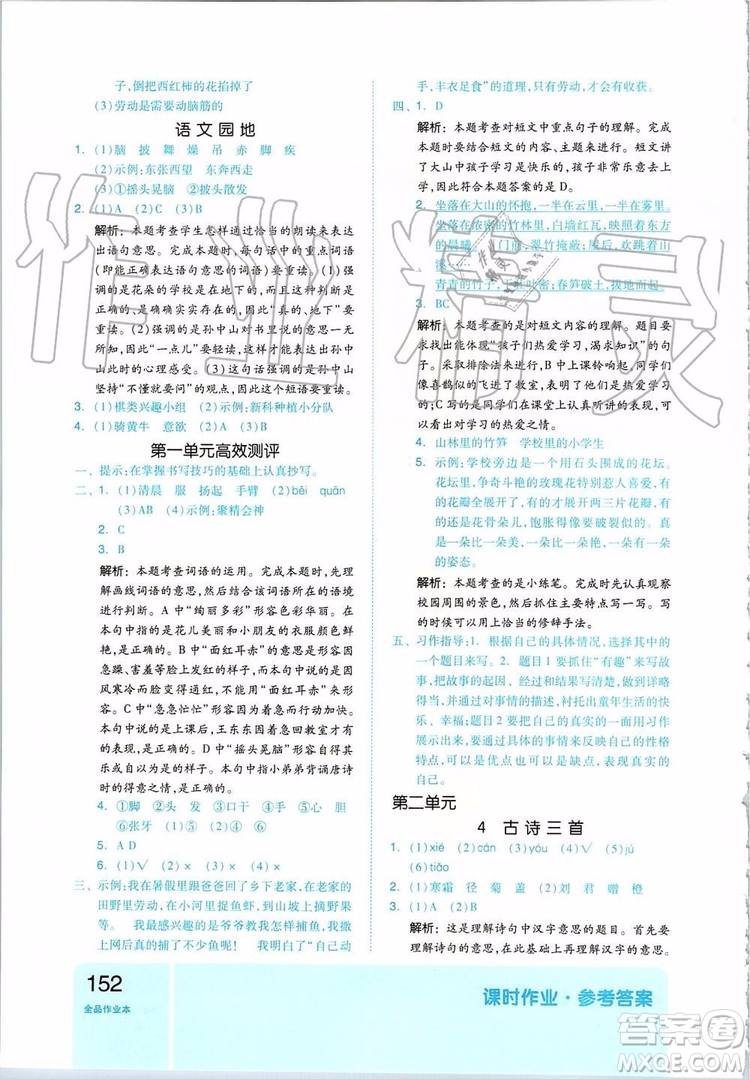 子，倒把西红柿的花掐掉了
(3)劳动是需要动脑筋的
语文园地
1. (1)脑 披 舞 燥 吊 赤 脚 疾
(2)示例：东张西望 东奔西走
(3)①摇头晃脑 ②披头散发
2. (1)A (2)C (3)B
解析：本题考查学生怎样通过恰当的朗读来表达
出语句意思。完成本题时，每句话中的重点词语
(即能正确表达语句意思的词语)要重读。(1)强
调的是花朵的学校是在地下，因此“真的、地下”要
重读。(2)强调的孙中山对书里说的道理的不理
解，因此“一点儿”要重读。(3)强调的孙中山
此时的心理感受。(4)强调的是此时孙中山
坚持“不懂就要问”的品质，因此这个短语要重读。
3. (1)棋类兴趣小组 (2)示例：新科种植小分队
4. (1)骑黄牛 意欲 (2)C
第一单元高效测评
一、提示：在掌握书写技巧的基础上认真抄写。
二、1. (1)清晨 服 扬起 手臂 (2)běi quān
(3)AB (4)示例：聚精会神
2. C
3. B
解析：本题考查词语的运用。完成时，先理
解画线词语的意思，然后根据词语使用的语
境进行判断。A中“绚丽多彩”形容色彩华丽。在
本句中指的是花儿美丽和小朋友的衣服颜色鲜
艳，是正确的。B中“面红耳赤”形容因
急躁、害羞等脸上发红的样子，而本句中说的是因
风寒冷而使脸变成了红色，不能用“面红耳赤”来
形容。C中“急急忙忙”形容因着急而行动加快。
本句中说的是上课了，王东东因急回教室才有
的表现，是正确的。D中“摇头晃脑”形容自得其
乐的样子。本句中指小弟弟背诵唐诗
时的得意之情，是正确的。
4. ①脚 ②头 发 ③口干 ④手 ⑤心 胆
⑥张牙 (1)④ (2)⑤ (3)②
5. AD
6. (1)√ (2)× (3)× (4)√
三、示例：我在暑假里跟爸爸回了乡下老家，在老家的
田野里劳动，在小河里捉鱼虾，到山坡上摘野果
子。 我最感兴趣的是爷爷教我怎样捕鱼，我
撒上网后真的捕了不少鱼。 因为我自己动
152
全品作业本
手，丰衣足食”的道理，只有劳动，才能有收获。
四、1. D
解析：本题考查对短文中重点句子的理解。完成本
题时，要在通读短文的基础上完成。短文讲
了大山中孩子学习是快乐的，孩子是热爱学习
的，因此符合本题答案的是D。
2. 坐落在大山的怀抱，一半在云里，一半在雾里。
坐落在浓密的竹林里，白墙红瓦，映照在美丽
的晨曦。 门前，翠竹掩蔽；后边，欢跳着山
溪。
青青的竹子，千丛叶密；春笋，节节拔起。
3. BC
解析：本题考查的是对短文内容的理解。题目要
求找出能体现“孩子热爱学习，渴求知识”的句
子。完成时，采用排除法。B中上课铃响起，同学们
像喜鹊似的飞进了教室，体现了他们是热爱学习
的；C写的是同学们在课堂上认真读书的情景，可
以看出他们对学习的热爱之情。
4. 山林里的竹笋 学校里的小学生
5. 示例：学校旁边是一个用石头围成的花坛。
花坛里，争奇斗艳的玫瑰花特别惹人喜爱，有
的花瓣全展开了；有的才展开两三片花瓣；有
的还是花骨朵儿，饱胀得马上要破裂似的。真
是一朵比一朵美，一朵比一朵娇，一朵有一朵
的姿态。
解析：本题考查的是小练笔。完成时先认真观察
校园周围的景色，然后抓住景物的特点进行描
写，写的时候用上恰当的修辞手法。
五、习作指导：1. 根据自己的具体情况，选择一个适合
自己的题目来写。2. 题目1要抓住“有趣”来写故
事，把故事的起因、经过和结果写清楚，做到详略
得当，通过对事情的描述，衬托出童年生活的快
乐、幸福；题目2要把自己的真实的一面用习作展
示出来，通过具体的事情来反映自己的性格
特点，可以是优点，也可以是缺点，写出一个真实的
自己。
第二单元
4 古诗三首
1. (1)xié (2)cán (3)yóu (4)√ (5)jú
(6)tiāo
2. (1)寒霜 径 菊 盖 (2)刘 君 赠 橙
3. (1)A (2)B
解析：这是理解诗句中汉字意思的题目。首先要
理解诗句的意思，在此基础上正确理解汉字的意思。
课时作业·参考答案
作业精灵
答案圈
MXQE.COM